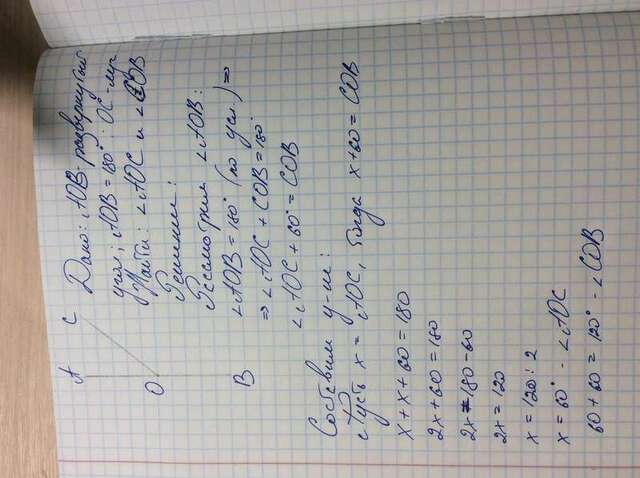 A C
Дано: AOB - развернутый
угол; AOB = 180°; OC - луч
O
Найти: ∠AOC и ∠COB
Решение:
Рассмотрим ∠AOB:
B
∠AOB = 180° (по усл.) ⇒
⇒ ∠AOC + COB = 180°
∠AOC + 60° = COB
Составим у-ие:
Пусть x = AOC, тогда x+60 = COB
x + x + 60 = 180
2x + 60 = 180
2x = 180 - 60
2x = 120
x = 120 : 2
x = 60° - ∠AOC
60 + 60 = 120° - ∠COB